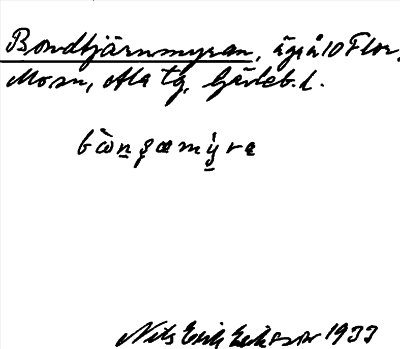 Bondtjärnmyran, äga å 10 Flor,
Mosn, Ala tg, Gävleb. l.
bòn̠ʂæmỳ̠ra
Nils Erik Eriksson 1933